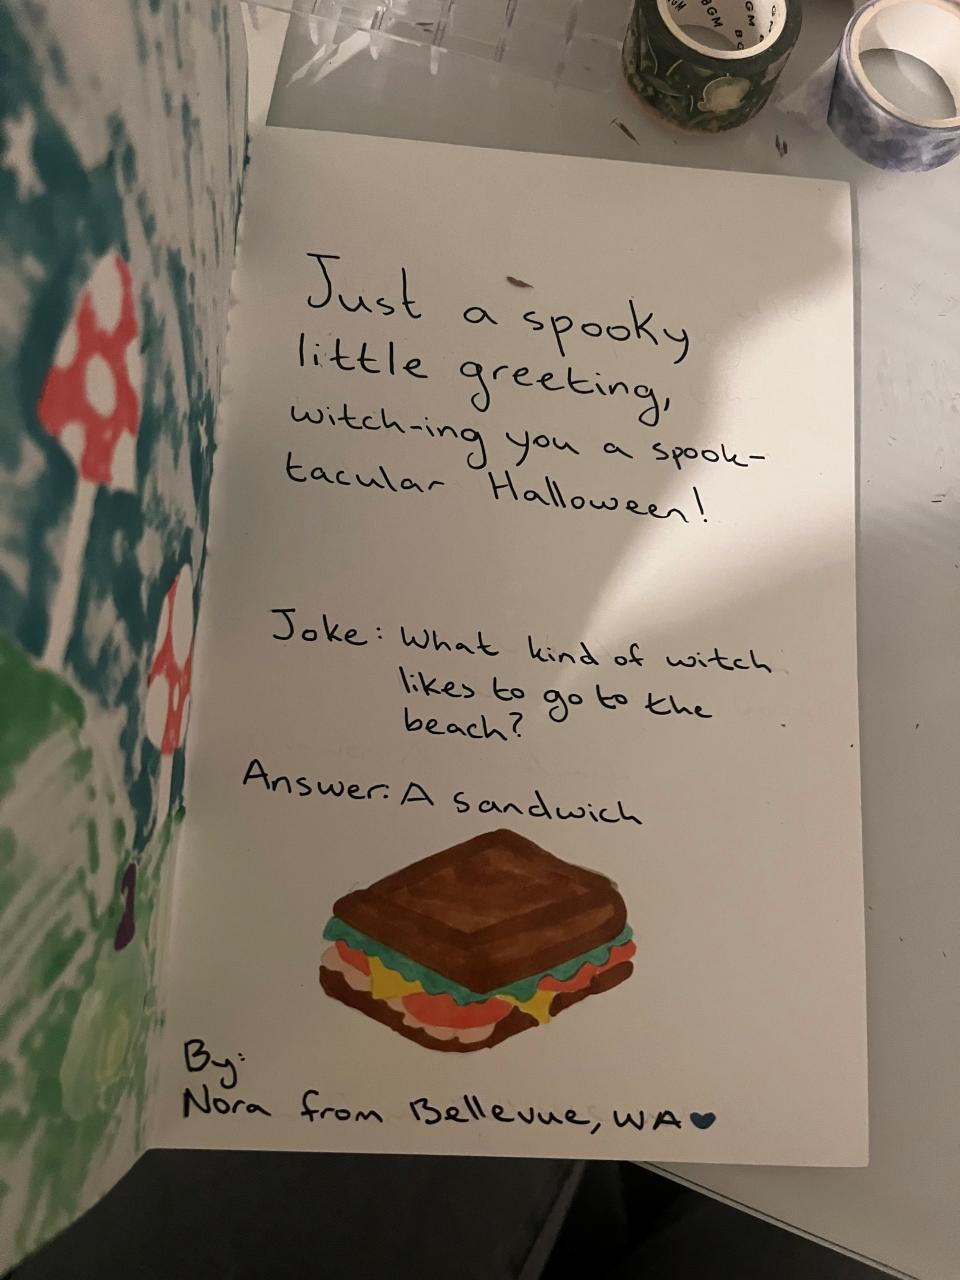 BGM
BGM
Just a spooky
little greeting,
witch-ing you a spook-
tacular Halloween!
Joke: What kind of witch
likes to go to the
beach?
Answer: A sandwich
By:
Nora from Bellevue, WA